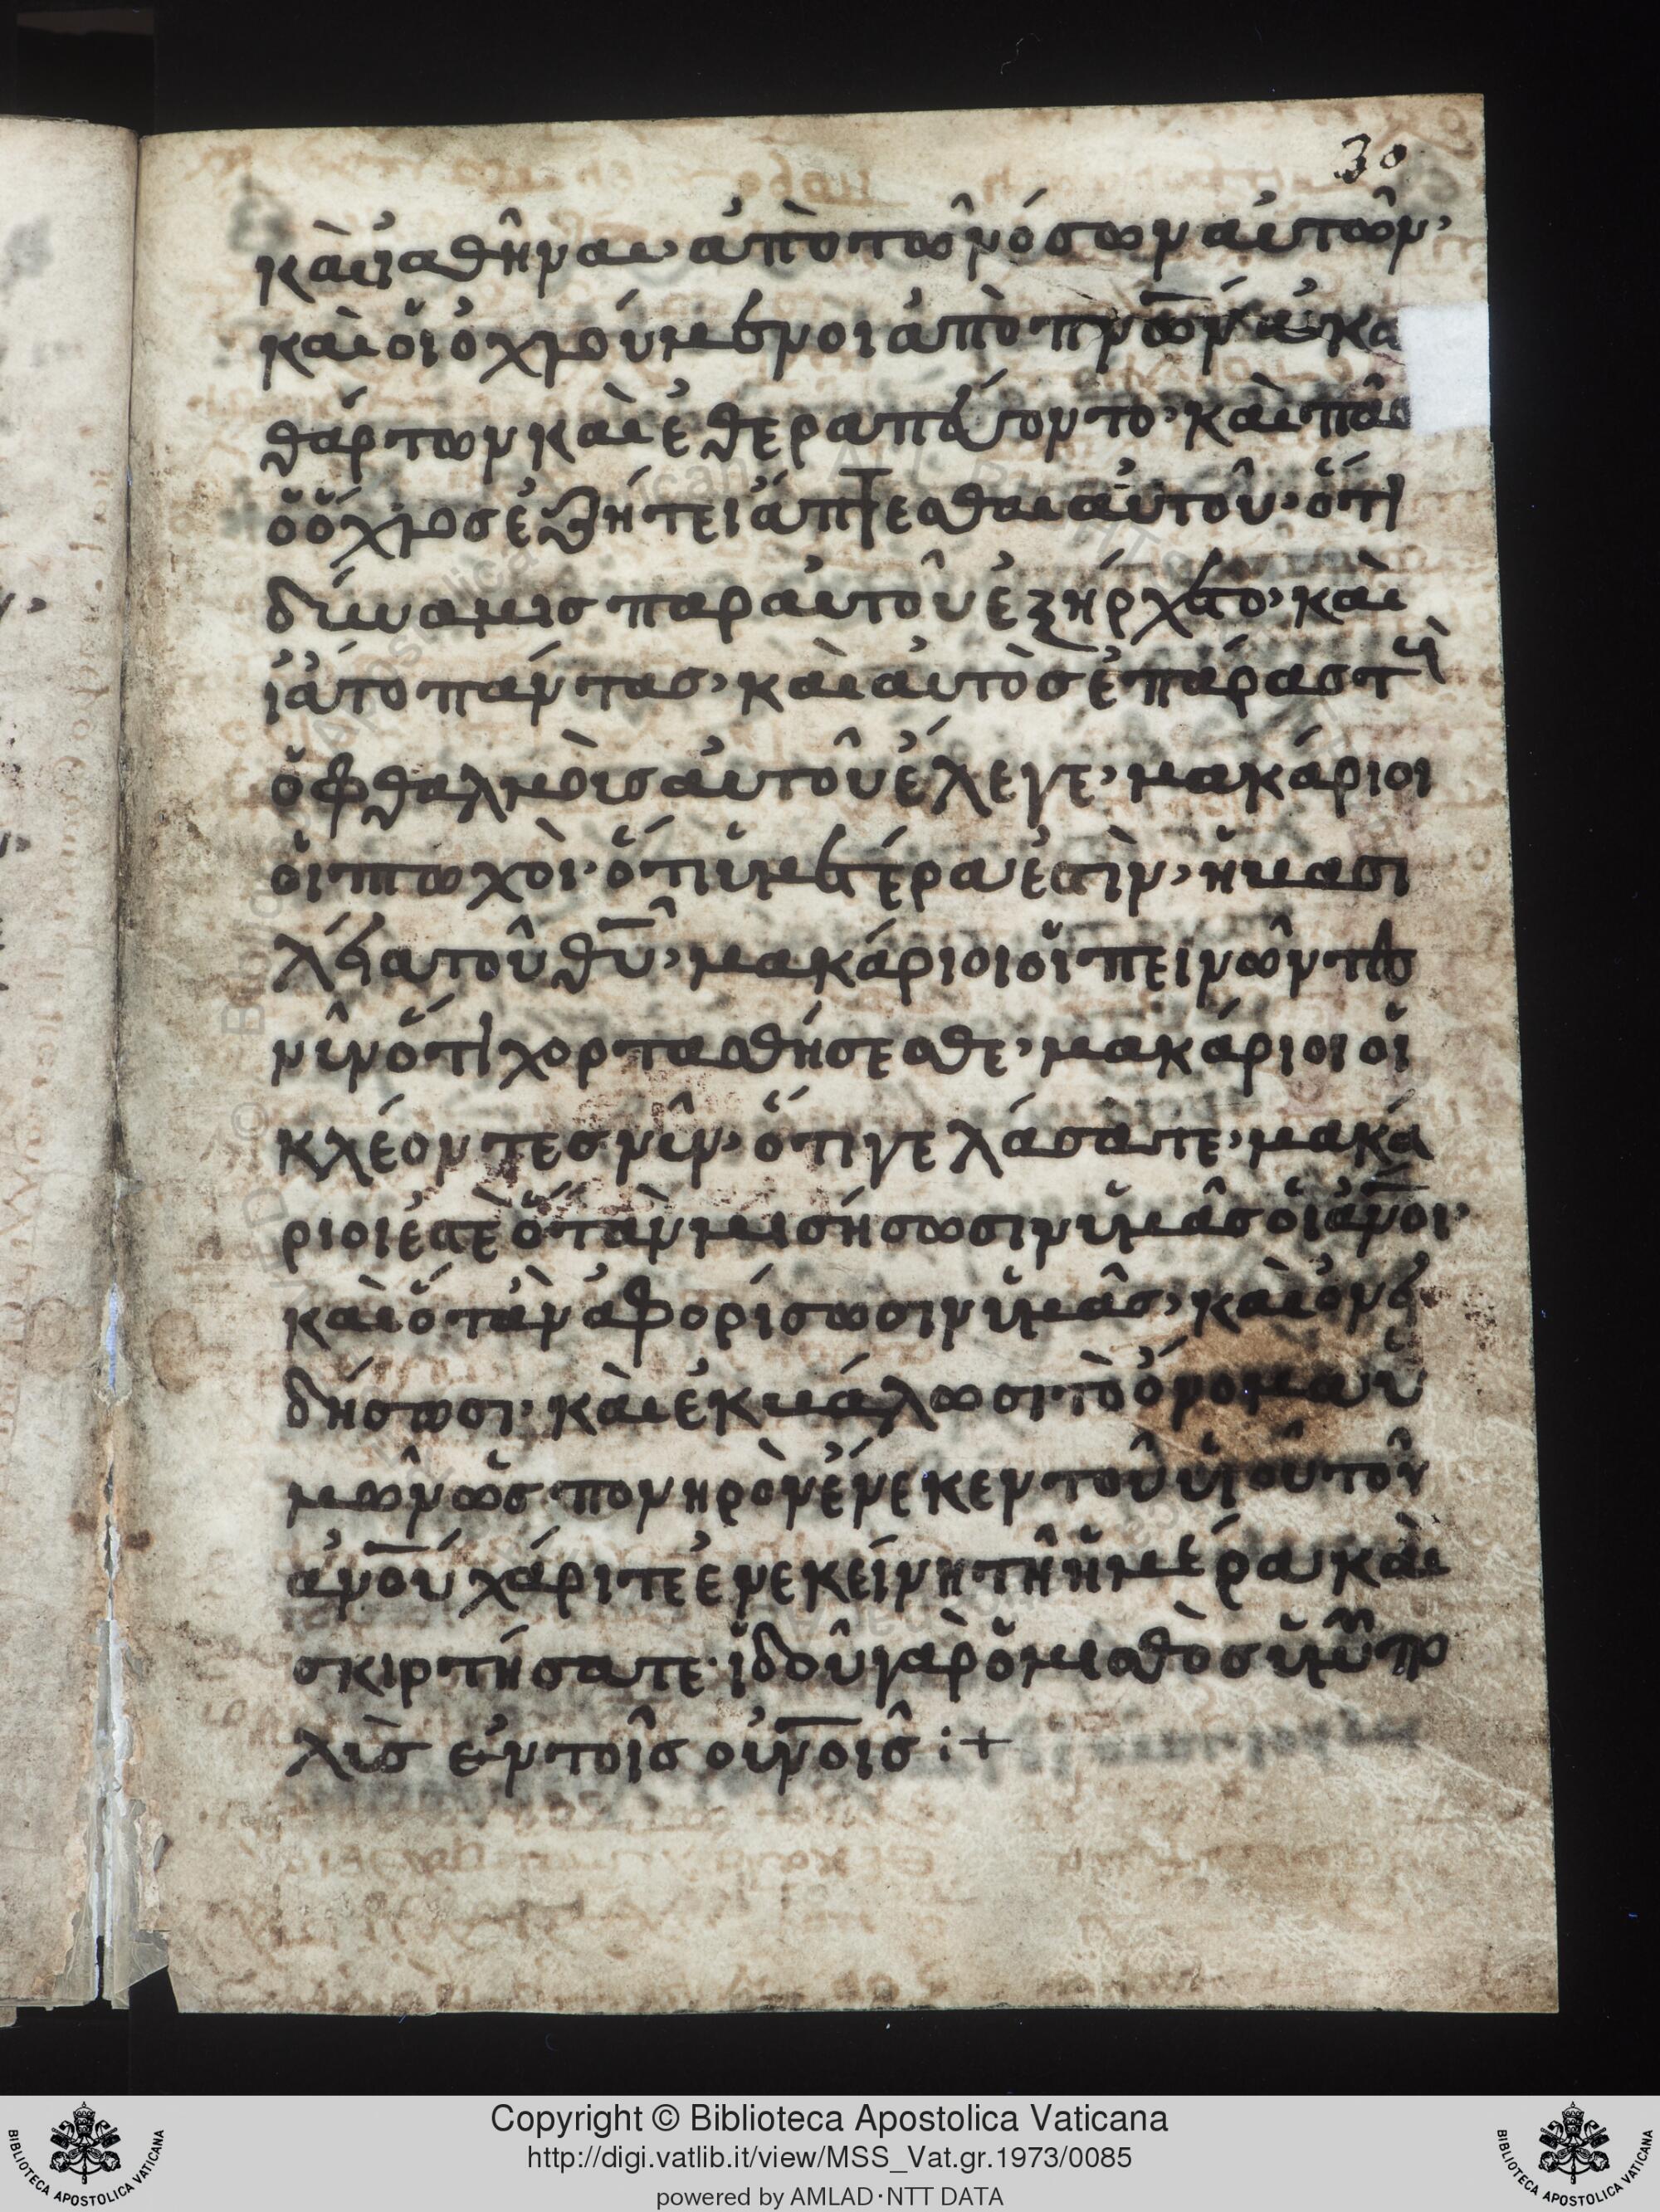 30
καὶ ἰαθῆναι ἀπὸ τῶ νόσων αὐτῶν·
καὶ οἱ ὀχλούμενοι ἀπὸ πν̅ων ἀκα
θάρτων καὶ ἐθεραπεύοντο· καὶ πᾶσ
ὁ ὄχλοσ ἐζήτει ἅπτεσθαι αὐτοῦ· ὅτι
δύναμισ παρ αὐτοῦ ἐξήρχετο· καὶ
ἰάτο πάντασ· καὶ αὐτὸσ ἐπάρασ τοὺ
ὀφθαλμοὺσ αὐτοῦ ἔλεγε· μακάριοι
οἱ πτωχοὶ· ὅτι ὑμετέρα ἐστὶν· ἡ βασι
λεία τοῦ θ̅υ· μακάριοι οἱ πεινῶντεσ
νῦν ὅτι χορτασθήσεσθε· μακάριοι οἱ
κλέοντεσ νῦν· ὅτι γελάσατε· μακά
ριοι ἐστὲ ὅταν μισήσωσιν ὑμᾶσ οἱ ἀν̅οι·
καὶ ὅταν ἀφορίσωσιν ὑμᾶσ· καὶ ὀνει
δήσωσι· καὶ ἐκβάλωσι τὸ ὄνομα ὑ
μῶν ὡσ πονηρὸν ἕνεκεν τοῦ υἱοῦ τοῦ
ἀν̅ου χάριτε ἐν εκείνη τῆ ἡμέρα καὶ
σκιρτήσατε· ἰδοῦ γὰρ ὁ μισθὸσ ὑμῶ πο
λὺσ ἐν τοῖσ οὐν̅οισ :+
Copyright © Biblioteca Apostolica Vaticana
http://digi.vatlib.it/view/MSS_Vat.gr.1973/0085
powered by AMLAD·NTT DATA
BIBLIOTECA APOSTOLICA VATICANA
BIBLIOTECA APOSTOLICA VATICANA